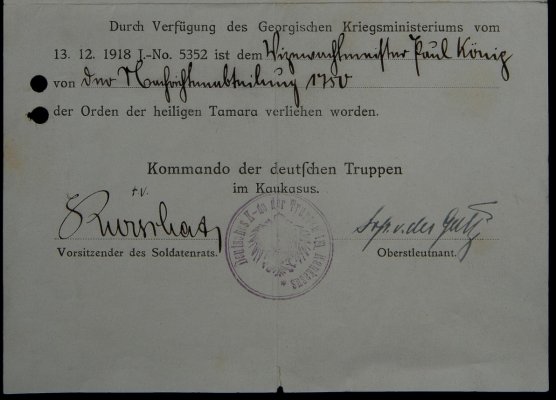 Durch Verfügung des Georgischen Kriegsministeriums vom
13. 12. 1918 J.-No. 5352 ist dem Vizewachtmeister Paul König
von der Nachrichtenabteilung 1750
der Orden der heiligen Tamara verliehen worden.
Kommando der deutſchen Truppen
im Kaukasus.
Vorsitzender des Soldatenrats.
Oberstleutnant.